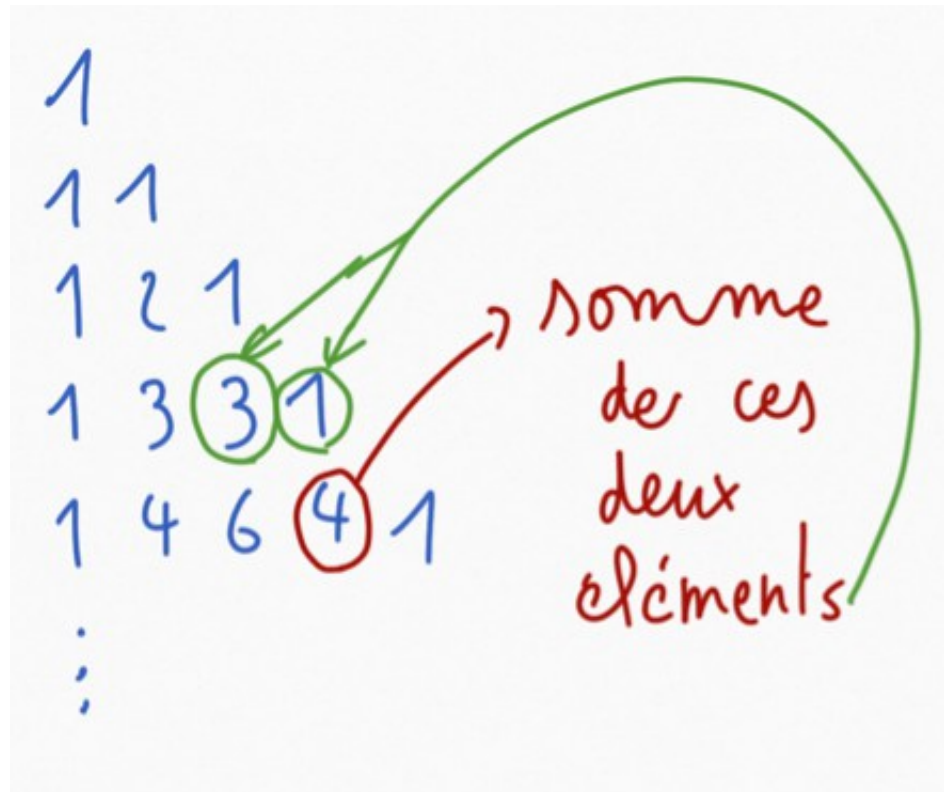 1
1 1
1 2 1
1 3 3 1
1 4 6 4 1
⋮
somme
de ces
deux
éléments